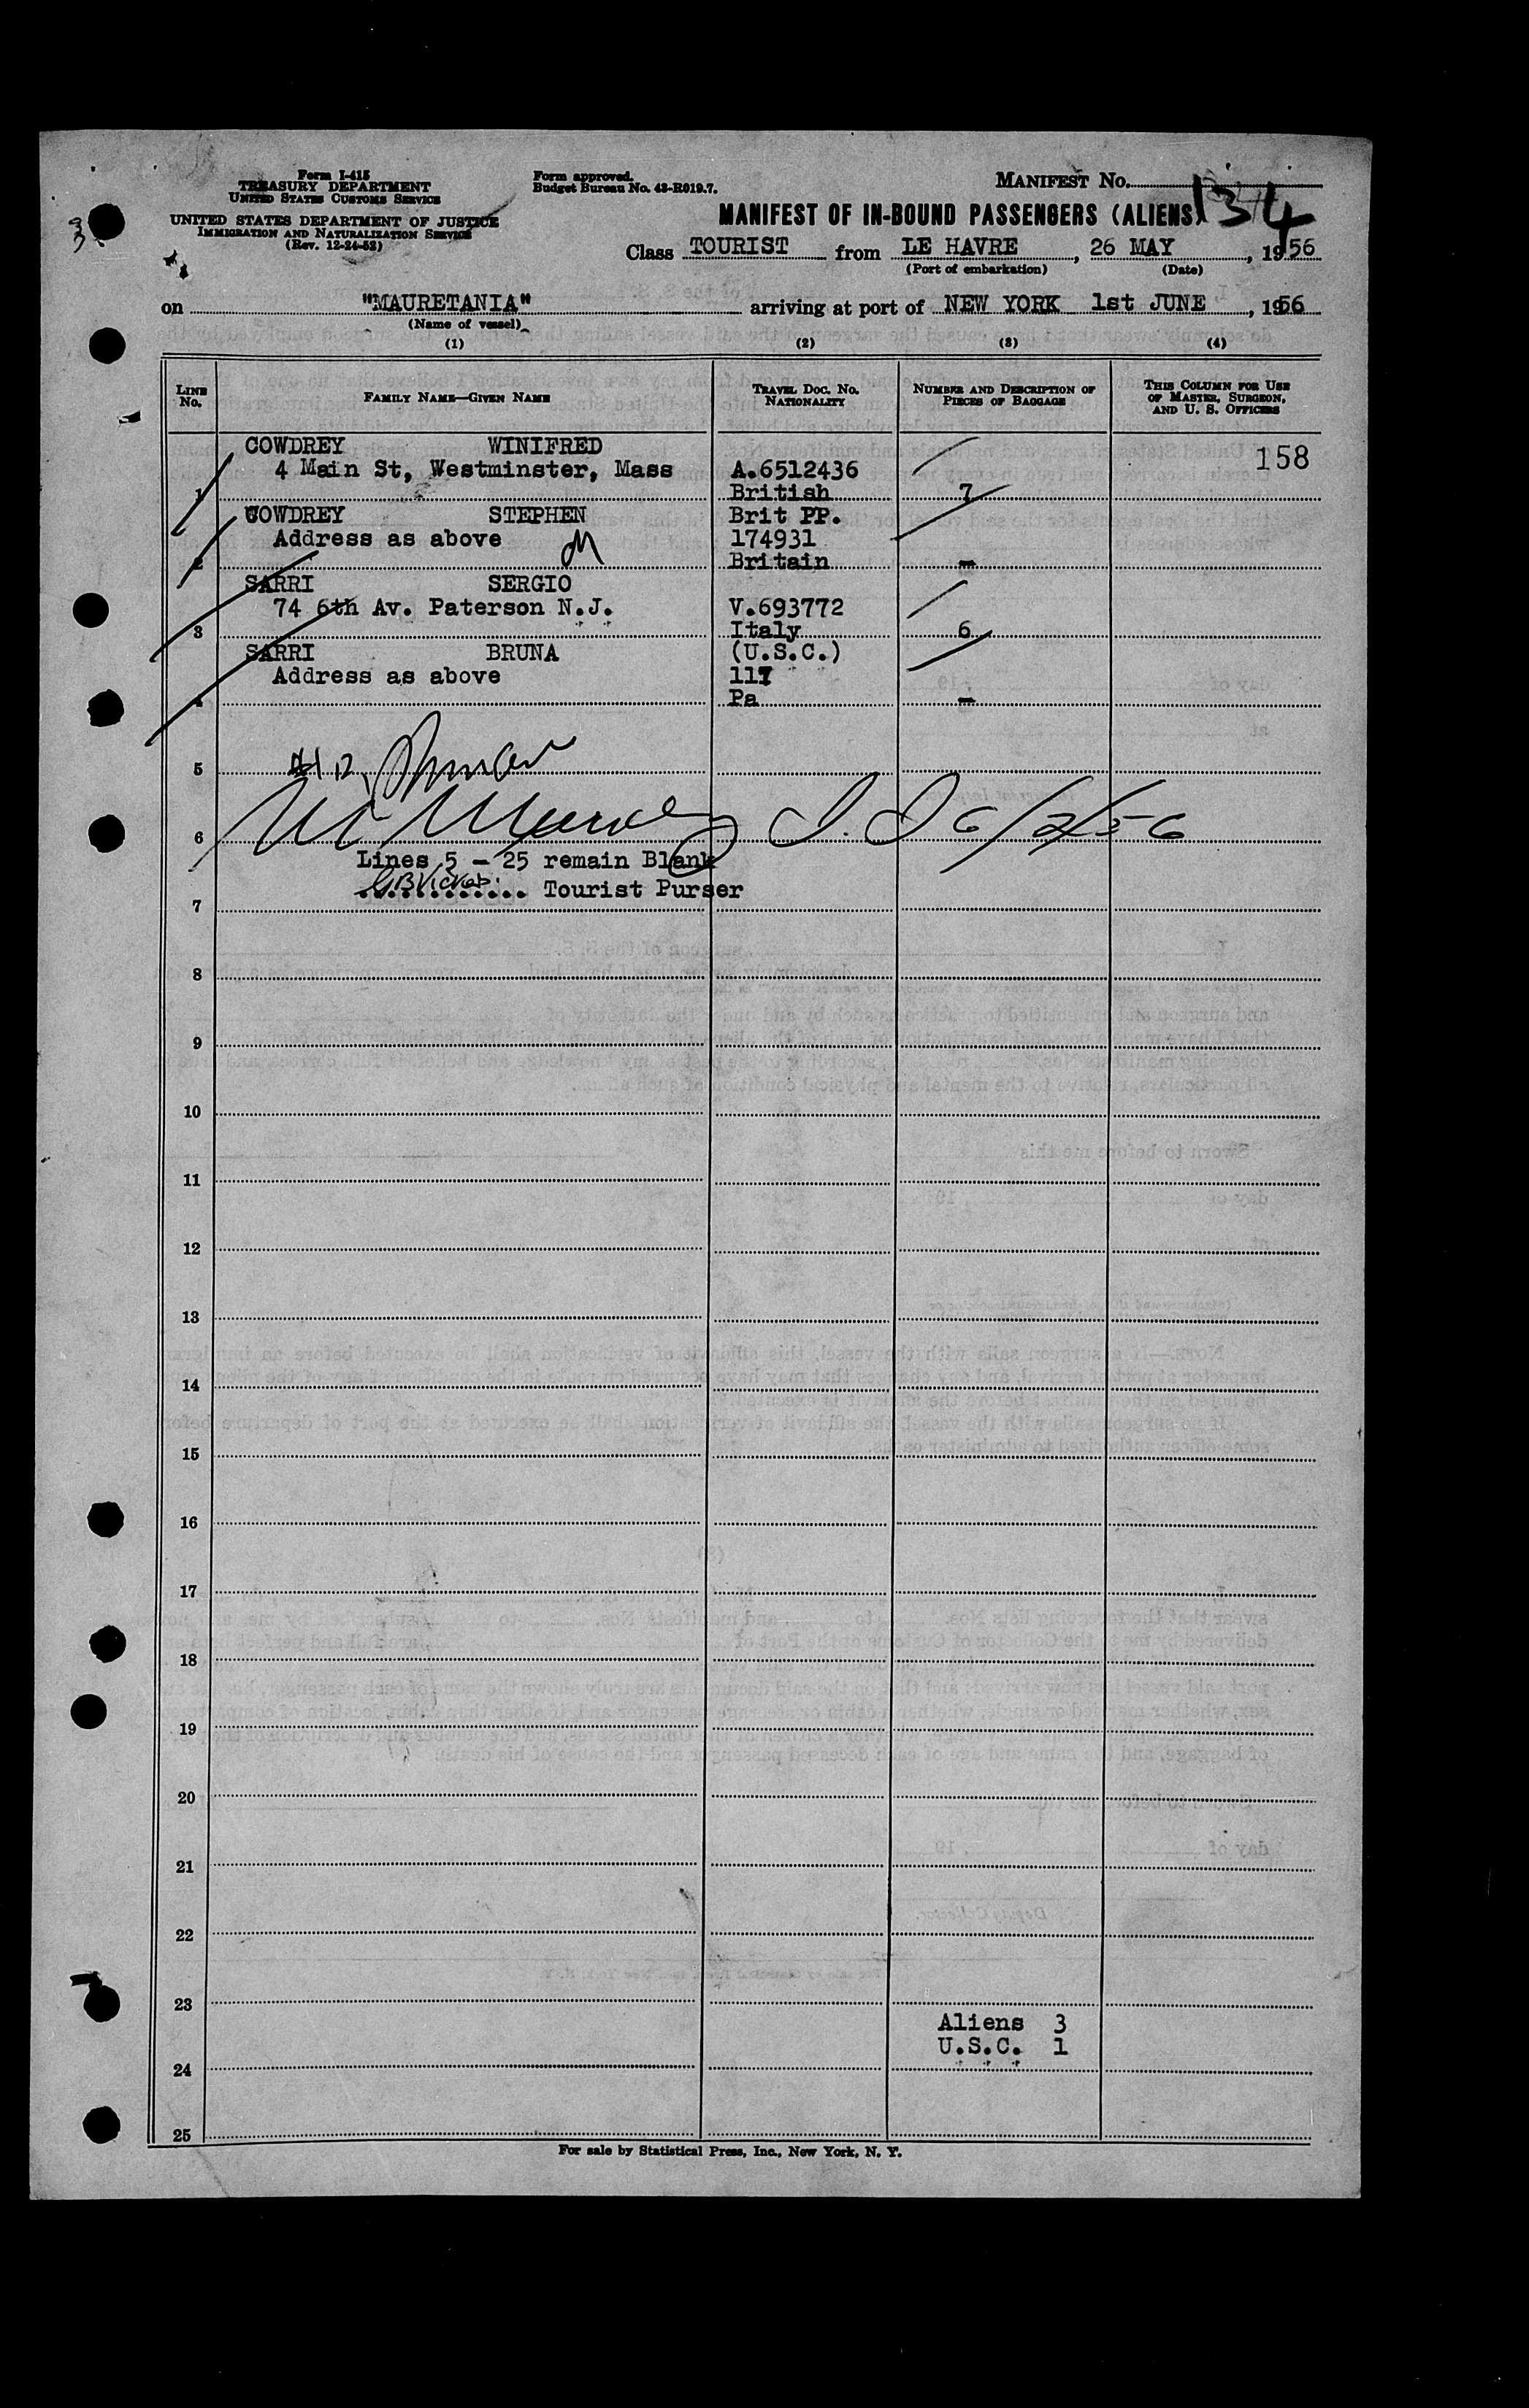 Form I-415
TREASURY DEPARTMENT
UNITED STATES CUSTOMS SERVICE
UNITED STATES DEPARTMENT OF JUSTICE
IMMIGRATION AND NATURALIZATION SERVICE
(Rev. 12-24-52)
Form approved.
Budget Bureau No. 43-R019.7.
MANIFEST NO.
134
MANIFEST OF IN-BOUND PASSENGERS (ALIENS)
Class TOURIST from LE HAVRE, 26 MAY, 1956
(Port of embarkation) (Date)
on "MAURETANIA" arriving at port of NEW YORK 1st JUNE, 1956
(Name of vessel)
(1) (2) (3) (4)
LINE NO. FAMILY NAME—GIVEN NAME TRAVEL DOC. NO. NATIONALITY NUMBER AND DESCRIPTION OF PIECES OF BAGGAGE THIS COLUMN FOR USE OF MASTER, SURGEON, AND U. S. OFFICERS
COWDREY WINIFRED 158
4 Main St, Westminster, Mass A.6512436
1 British 7
COWDREY STEPHEN Brit PP.
Address as above 174931
2 Britain -
SARRI SERGIO
74 6th Av. Paterson N.J. V.693772
3 Italy 6
SARRI BRUNA (U.S.C.)
Address as above 117
4 Pa -
5
6 6/2/56
Lines 5 - 25 remain Blank
Tourist Purser
7
8
9
10
11
12
13
14
15
16
17
18
19
20
21
22
23
Aliens 3
U.S.C. 1
24
25
For sale by Statistical Press, Inc., New York, N. Y.